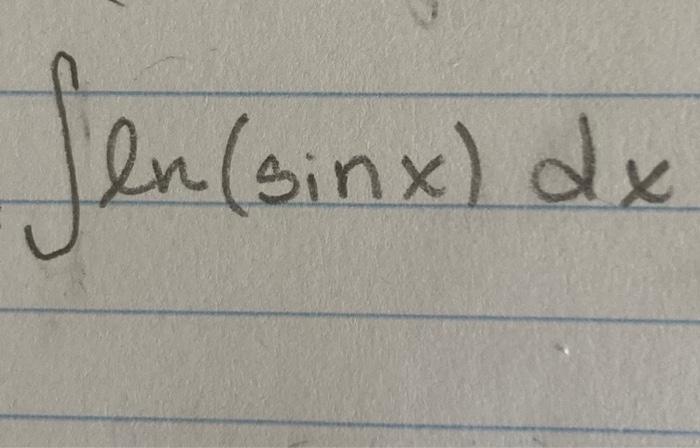 ∫ ln(sinx) dx